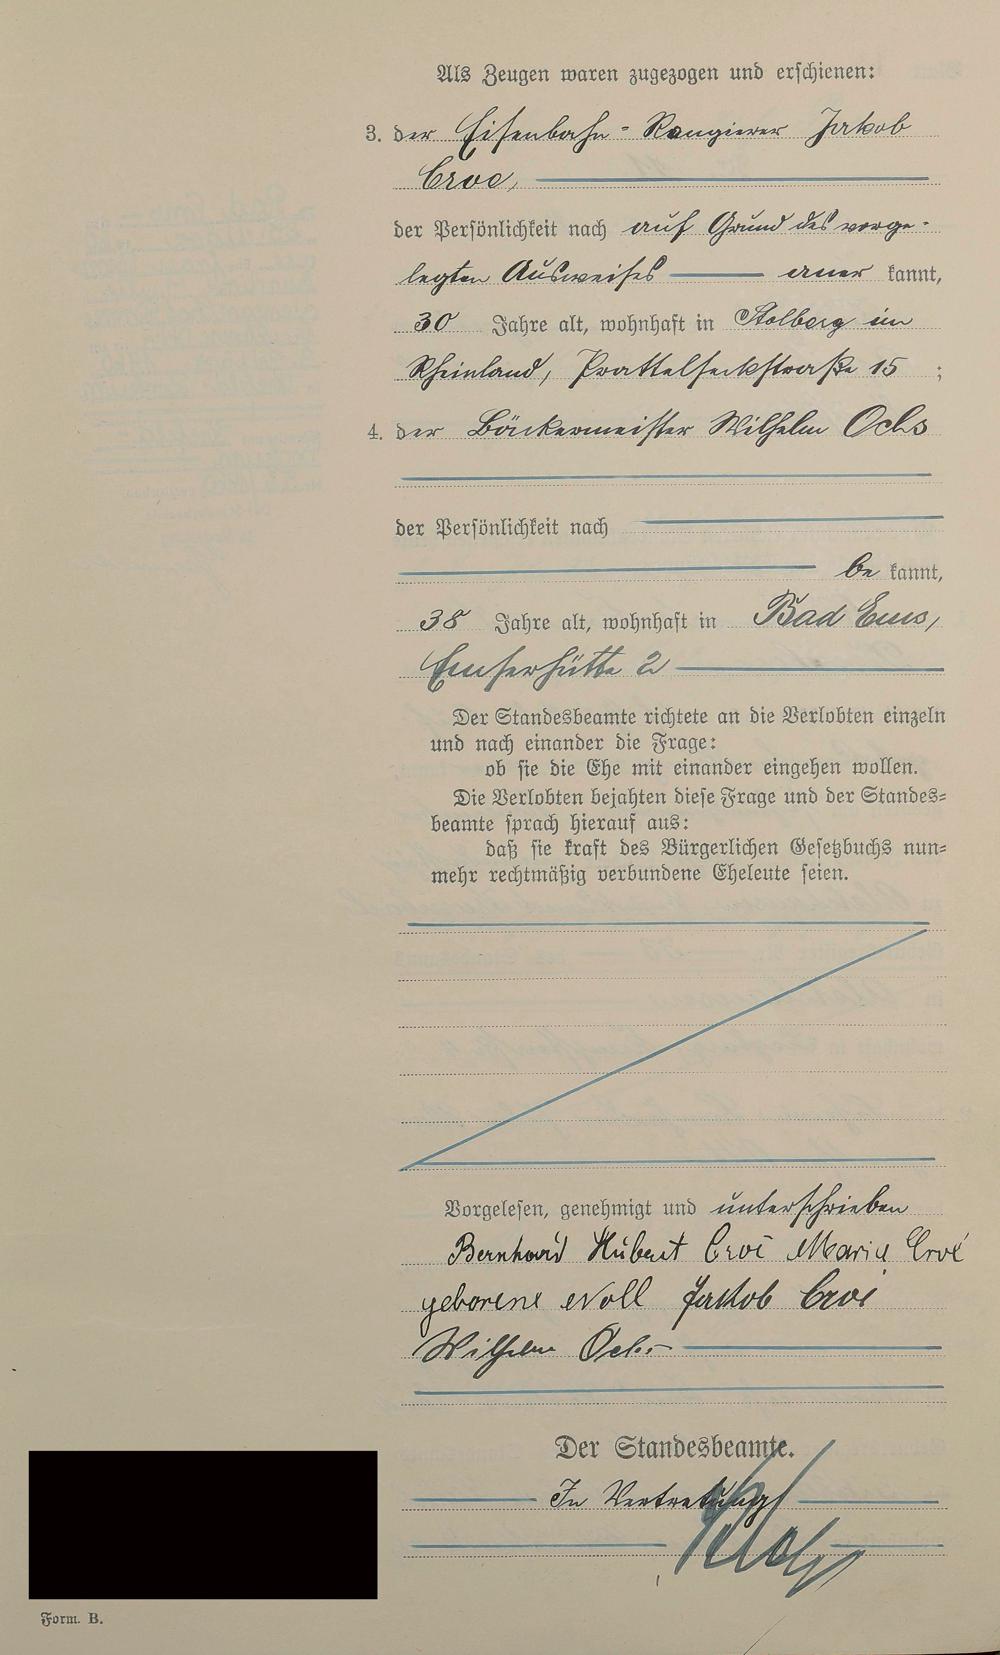 Als Zeugen waren zugezogen und erschienen:
3. der Eisenbahn-Rangierer Jakob
Croé,
der Persönlichkeit nach auf Grund des vorge-
legten Ausweises anerkannt,
30 Jahre alt, wohnhaft in Stolberg im
Rheinland, 15;
4. der Bäckermeister Wilhelm Ochs
der Persönlichkeit nach
bekannt,
38 Jahre alt, wohnhaft in Bad Ems,
Emserhütte 2
Der Standesbeamte richtete an die Verlobten einzeln
und nach einander die Frage:
ob sie die Ehe mit einander eingehen wollen.
Die Verlobten bejahten diese Frage und der Standes-
beamte sprach hierauf aus:
daß sie kraft des Bürgerlichen Gesetzbuchs nun-
mehr rechtmäßig verbundene Eheleute seien.
Vorgelesen, genehmigt und unterschrieben
Bernhard Hubert Croé Maria Croé
geborene Noll Jakob Croé
Wilhelm Ochs
Der Standesbeamte.
In Vertretung
Form. B.